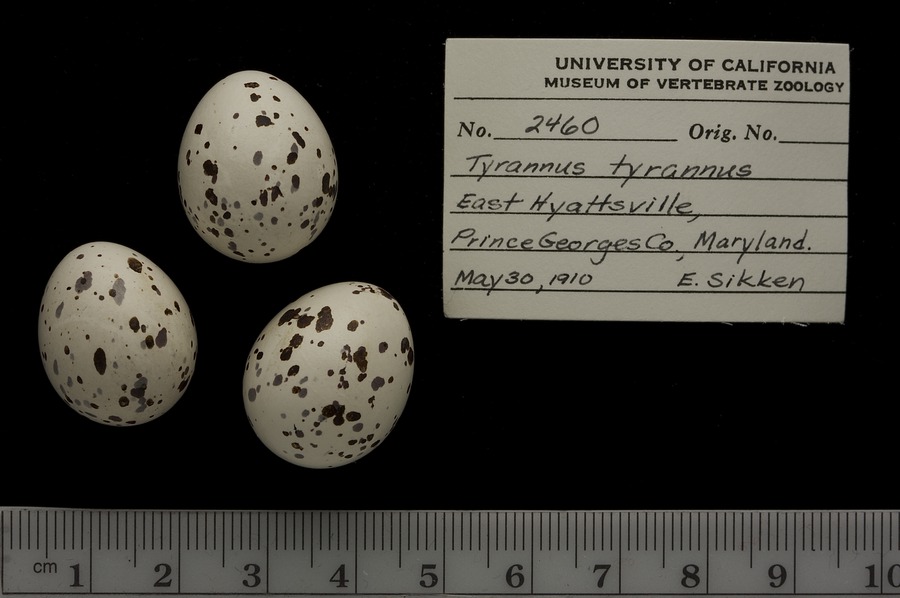 UNIVERSITY OF CALIFORNIA
MUSEUM OF VERTEBRATE ZOOLOGY
No. 2460 Orig. No.
Tyrannus tyrannus
East Hyattsville,
Prince Georges Co., Maryland.
May 30, 1910 E. Sikken
cm 1 2 3 4 5 6 7 8 9 10